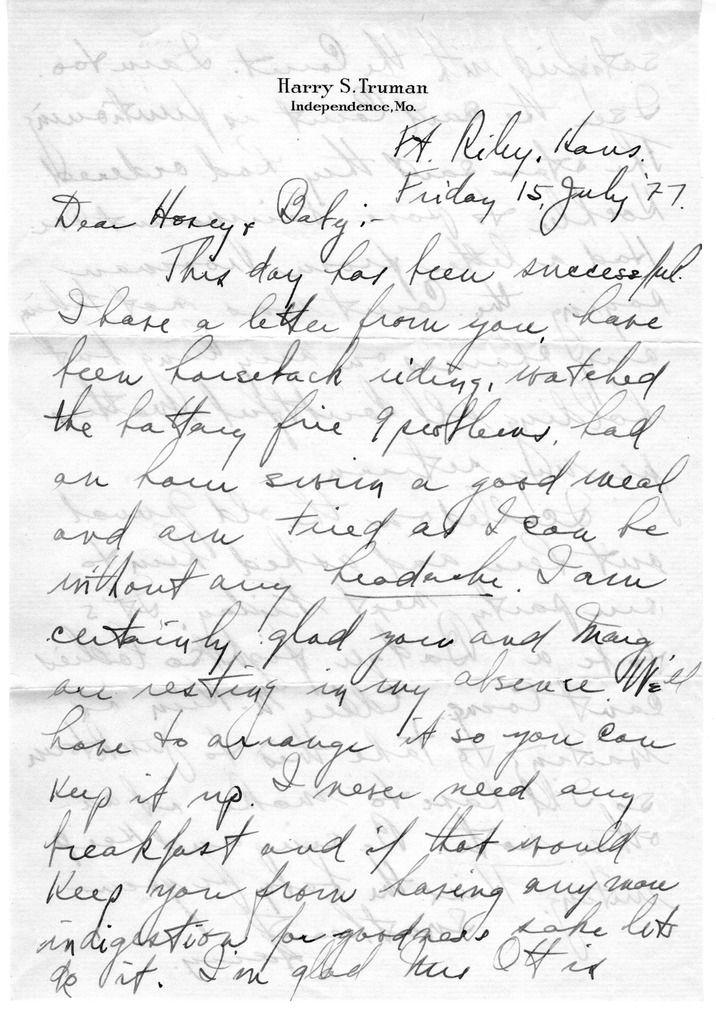 Harry S. Truman
Independence, Mo.
Ft. Riley, Kans.
Friday 15, July '77.
Dear Honey & Baby;-
This day has been successful.
I have a letter from you, have
been horseback riding, watched
the battery fire 9 problems, had
an hour swim a good meal
and am tired as I can be
without any headache. I am
certainly glad you and Marg
are resting in my absence. We'll
have to arrange it so you can
keep it up. I never need any
breakfast and if that would
keep you from having any more
indigestion for goodness sake lets
do it. I'm glad Mrs Ott is